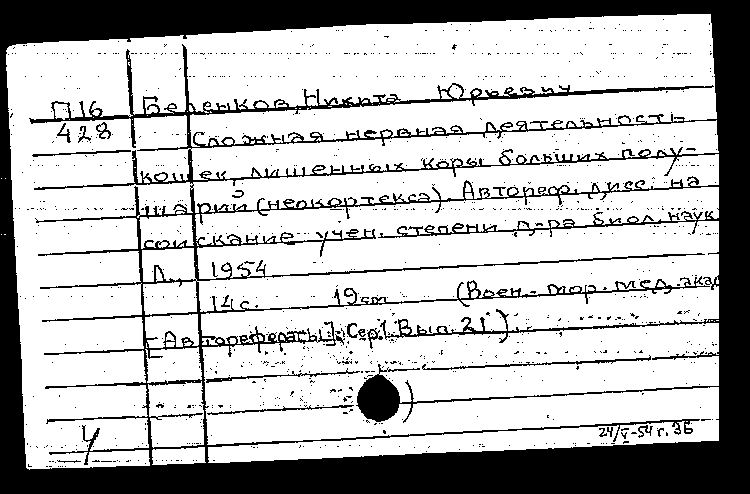 П16 Беленков, Никита Юрьевич
428 Сложная нервная деятельность
кошек, лишенных коры больших полу-
шарий (неокортекса). Автореф. дисс. на
соискание учен. степени д-ра биол. наук
Л., 1954
14 с. 19 см (Воен.-мор. мед. акад
[Авторефераты]. Сер 1. Вып. 21).
)
Ч
24/V-54 г. ЗБ